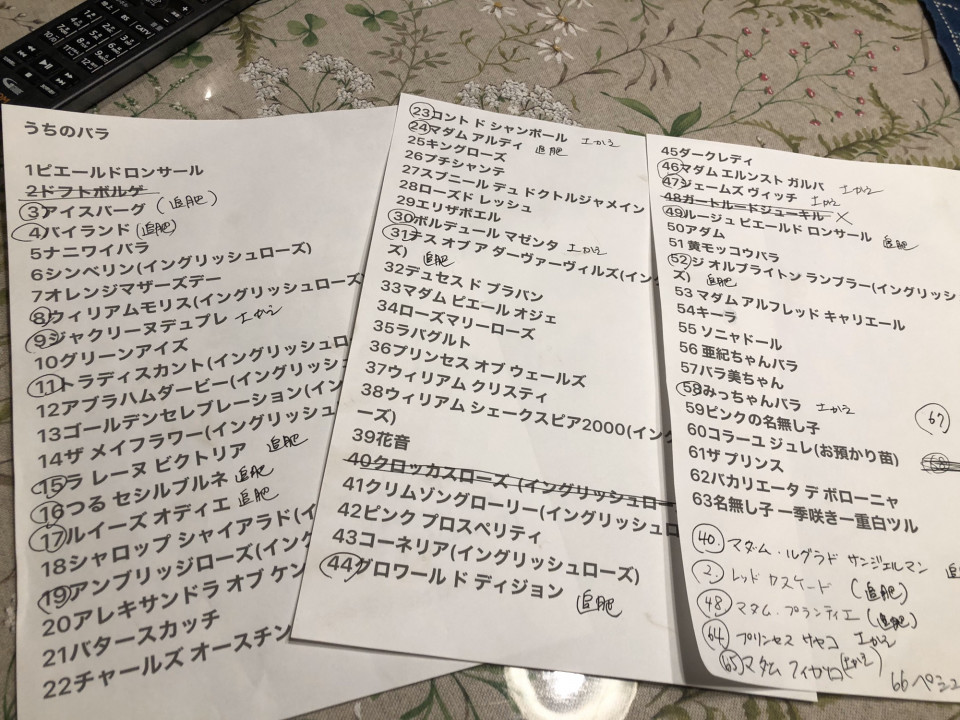 うちのバラ
1ピエールドロンサール
2ドフトボルゲ
3アイスバーグ (追肥)
4バイランド (追肥)
5ナニワイバラ
6シンベリン(イングリッシュローズ)
7オレンジマザーズデー
8ウィリアムモリス(イングリッシュローズ
9ジャクリーヌデュプレ 土かえ
10グリーンアイズ
11トラディスカント(イングリッシュロ
12アブラハムダービー(イングリッシ
13ゴールデンセレブレーション(イン
14ザ メイフラワー(イングリッシュ
15ラ レーヌ ビクトリア 追肥
16つる セシルブルネ 追肥
17ルイーズ オディエ 追肥
18シャロップ シャイアラド(イ
19アンブリッジローズ(イング
20アレキサンドラ オブ ケン
21バタースカッチ
22チャールズ オースチン
23コント ド シャンボール 土かえ
24マダム アルディ 追肥
25キングローズ
26プチシャンテ
27スブニール デュ ドクトルジャメイン
28ローズド レッシュ
29エリザボエル
30ボルデュール マゼンタ 土かえ
31テス オブ ア ダーヴァーヴィルズ(イング
ズ) 追肥
32デュセス ド ブラバン
33マダム ピエール オジェ
34ローズマリーローズ
35ラバグルト
36プリンセス オブ ウェールズ
37ウィリアム クリスティ
38ウィリアム シェークスピア2000(イング
ーズ)
39花音
40クロッカスローズ (イングリッシュロー
41クリムゾングローリー(イングリッシュロ
42ピンク プロスペリティ
43コーネリア(イングリッシュローズ)
44グロワール ド ディジョン 追肥
45ダークレディ
46マダム エルンスト ガルバ 土かえ
47ジェームズ ヴィッチ 土かえ
48ガートルードジューキル ×
49ルージュ ピエールド ロンサール 追肥
50アダム
51 黄モッコウバラ
52ジ オルブライトン ランブラー(イングリッシ
ズ) 追肥
53 マダム アルフレッド キャリエール
54キーラ
55 ソニャドール
56 亜紀ちゃんバラ
57バラ美ちゃん
58みっちゃんバラ 土かえ
59ピンクの名無し子
67
60コラーユ ジュレ(お預かり苗)
61ザ プリンス
62バカリエータ デ ボローニャ
63名無し子 一季咲き一重白ツル
40. マダム・ルグラド サンジェルマン 追
2. レッド カスケード (追肥)
48 マダム・プランティエ (追肥)
64 プリンセス サヤコ 土かえ
65 マダム フィガロ (土かえ)
66 ペシュ